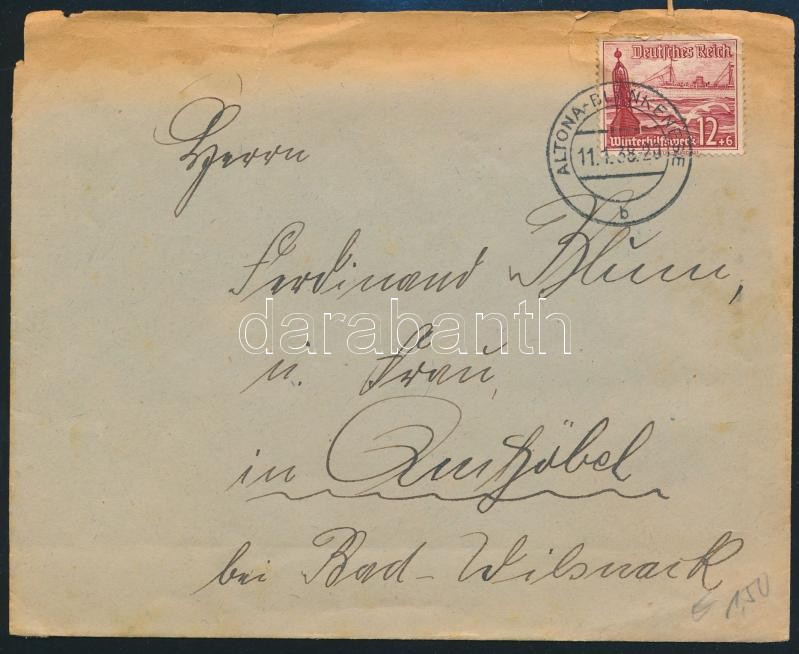 Deutsches Reich
12+6
Winterhilfswerk
ALTONA-BLANKENESE
11.1.38.20
b
Herrn
Ferdinand Blum,
darabanth
u. Frau,
in
bei Bad-Wilsnack
1,50